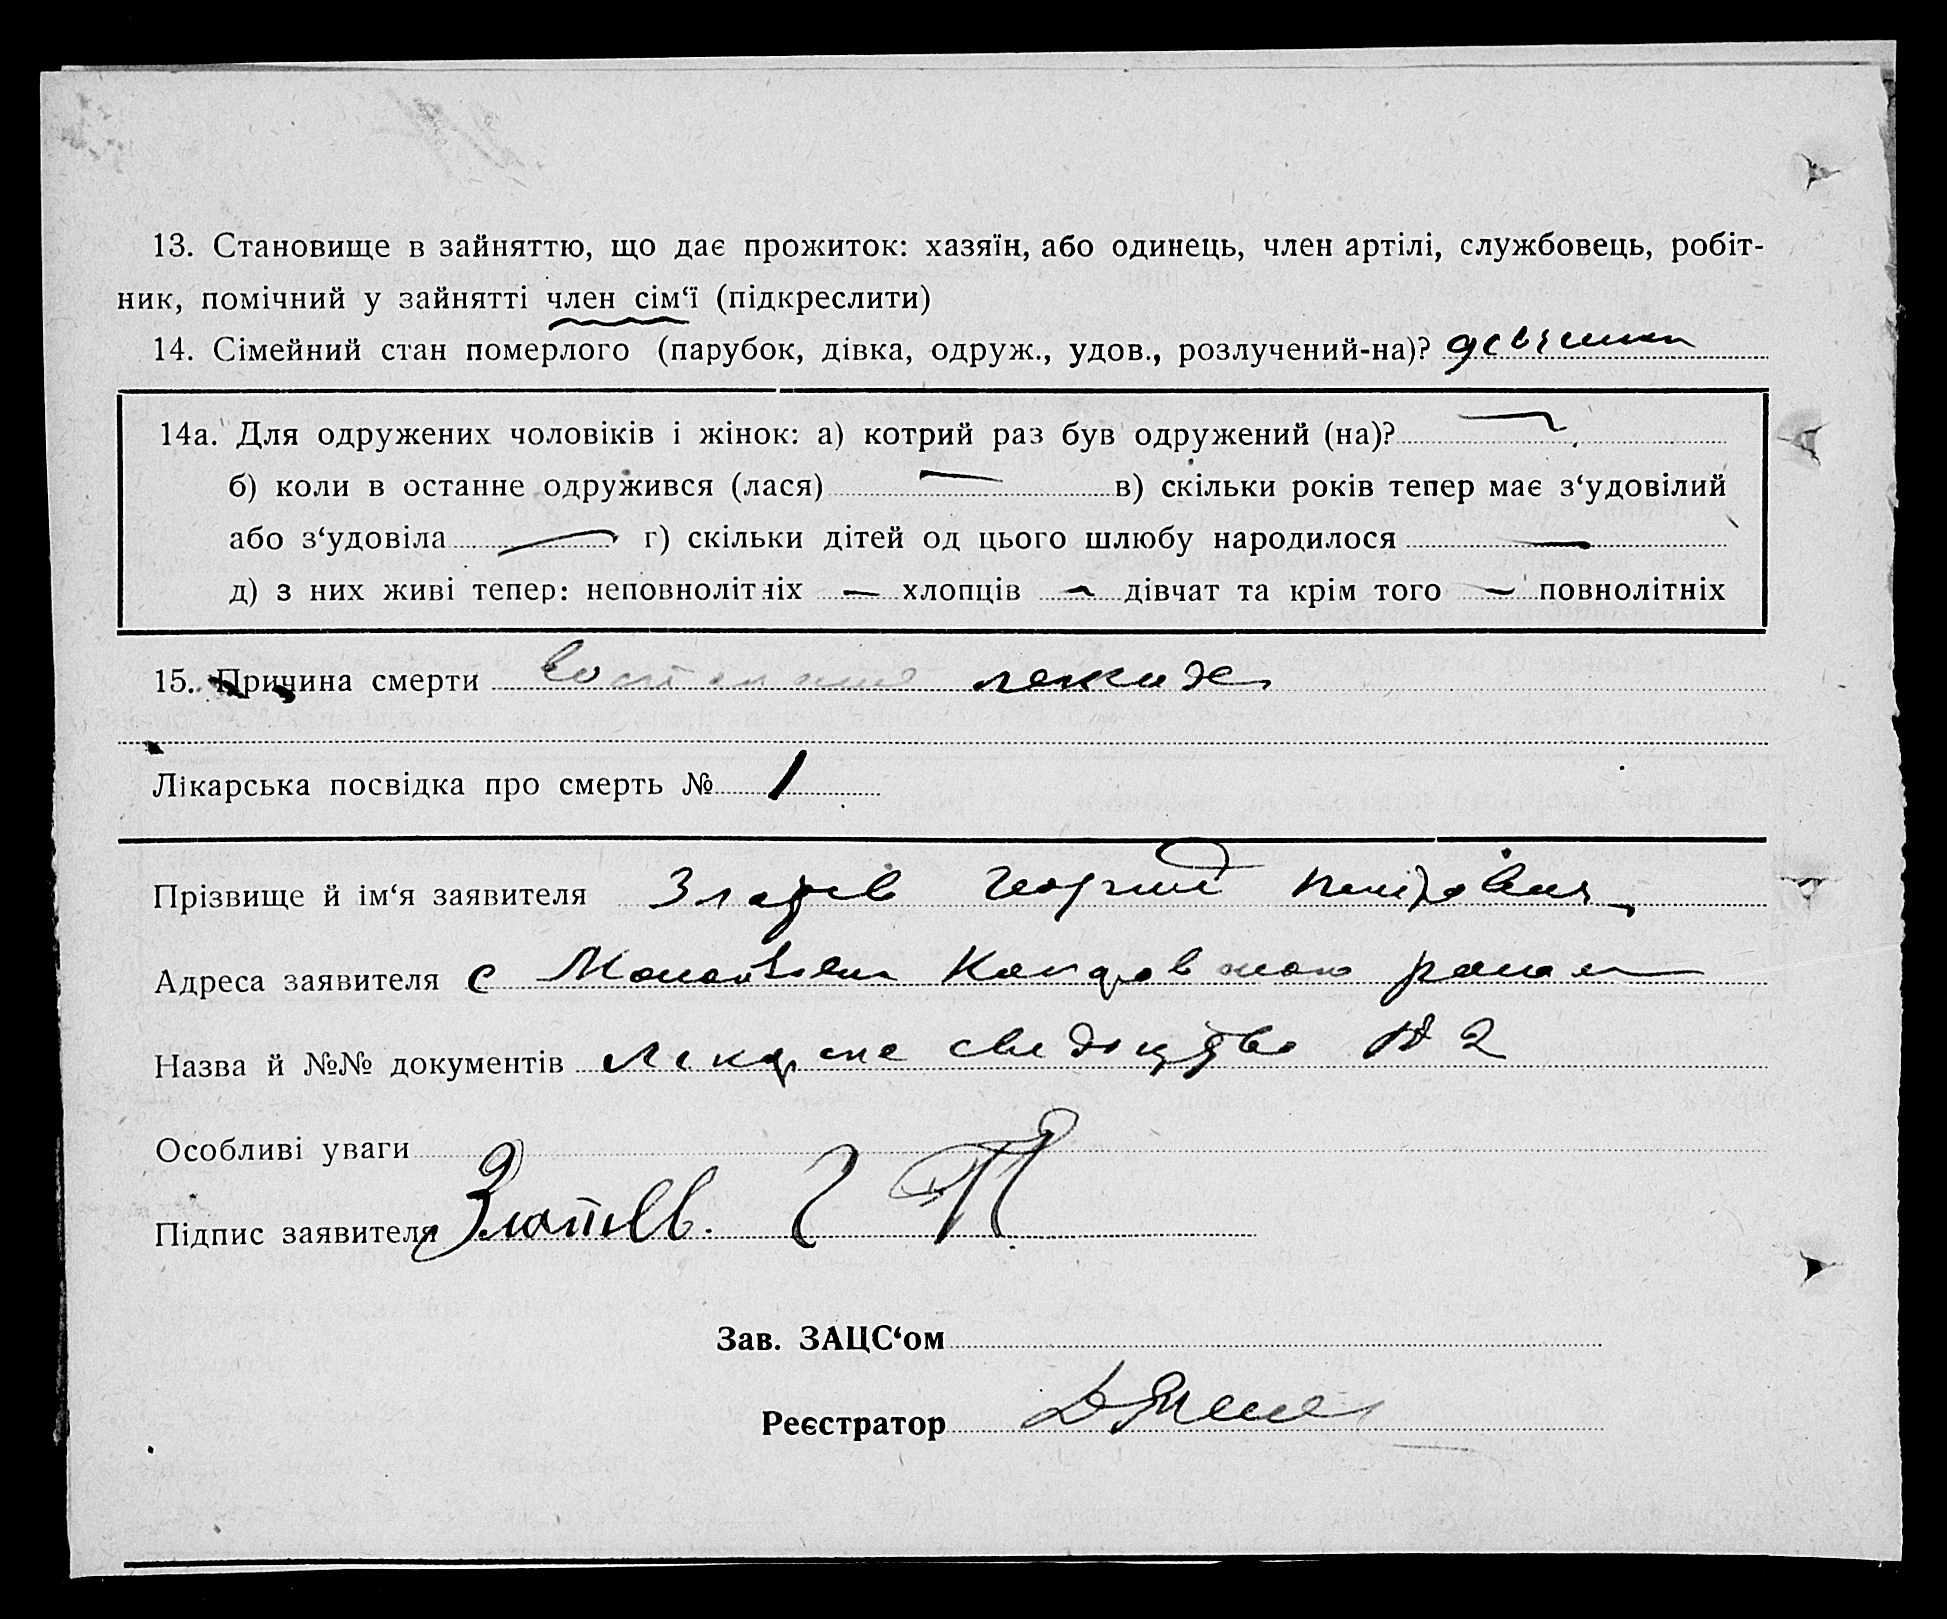 13. Становище в зайняттю, що дає прожиток: хазяїн, або одинець, член артілі, службовець, робіт-
ник, помічний у зайнятті член сім‘ї (підкреслити)
14. Сімейний стан померлого (парубок, дівка, одруж., удов., розлучений-на)?
14а. Для одружених чоловіків і жінок: а) котрий раз був одружений (на)? —
б) коли в останне одружився (лася) — в) скільки років тепер має з‘удовілий
або з‘удовіла — г) скільки дітей од цього шлюбу народилося —
д) з них живі тепер: неповнолітніх — хлопців — дівчат та крім того — повнолітніх
15. Причина смерти
Лікарська посвідка про смерть № 1
Прізвище й ім‘я заявителя Златєв Георгий
Адреса заявителя с
Назва й №№ документів № 2
Особливі уваги
Підпис заявителя Златев. Г П
Зав. ЗАЦС‘ом
Реєстратор